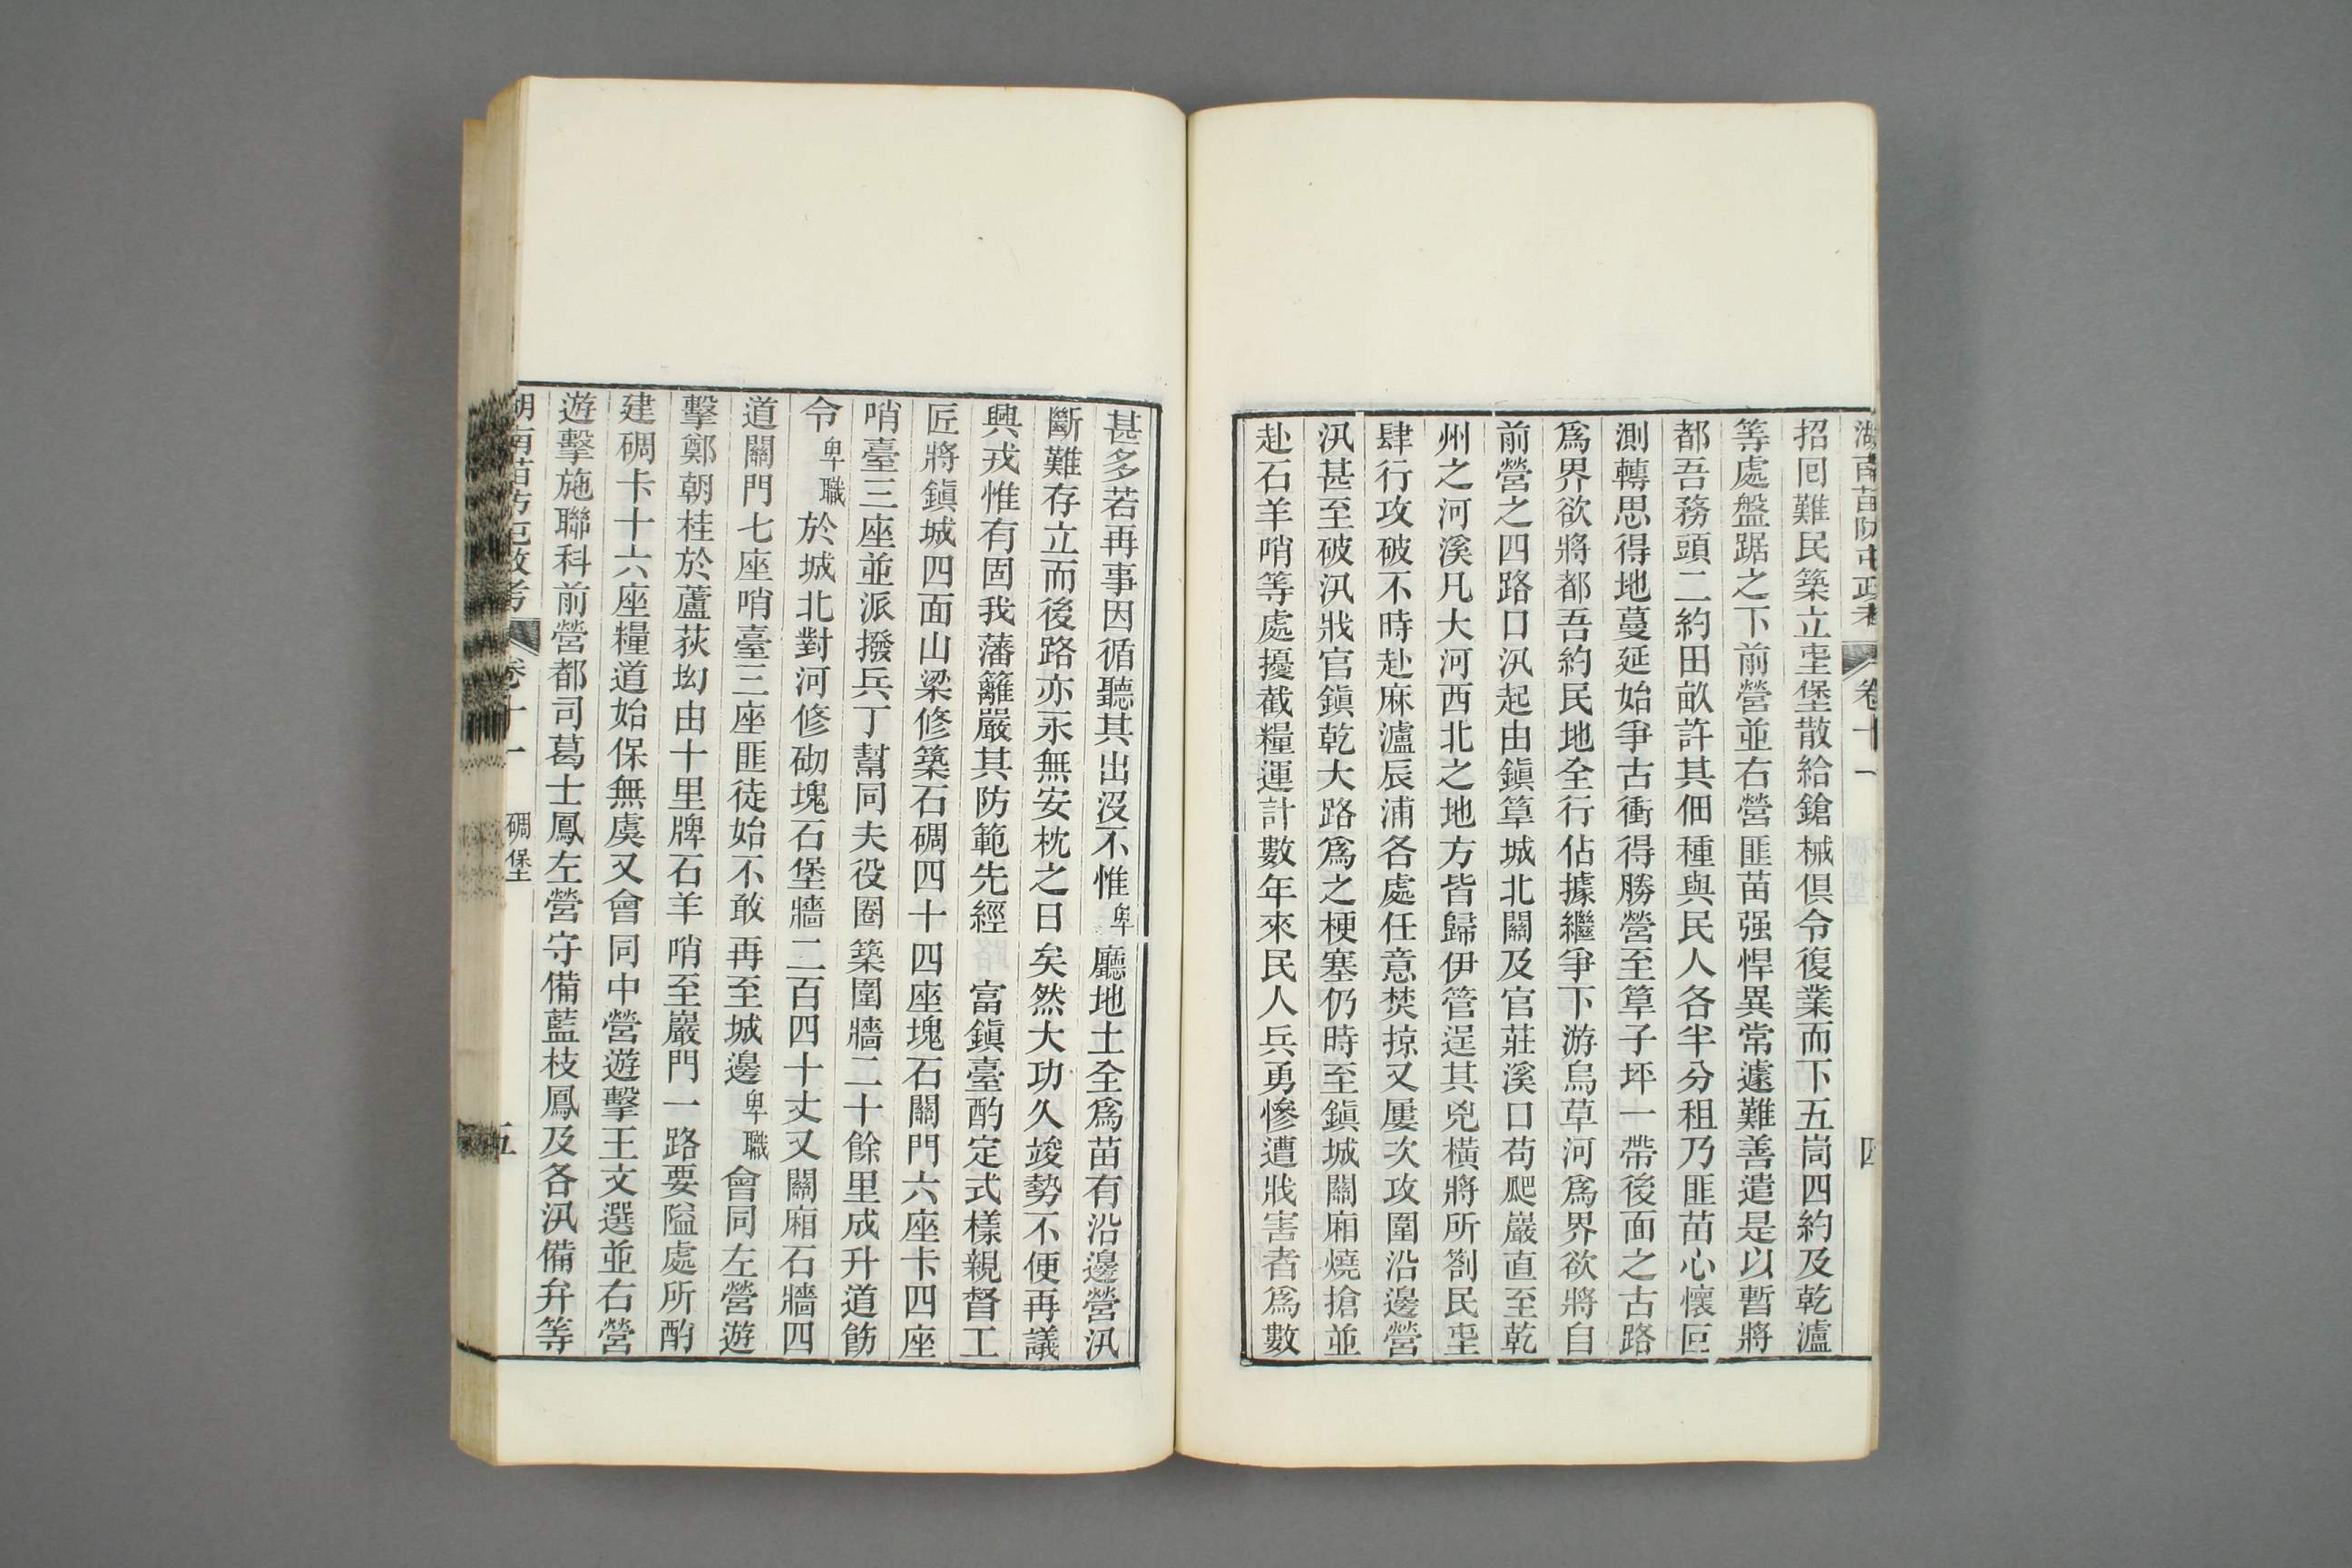 湖南苗防屯政考 卷十一 四
招囘難民築立屯堡散給鎗械俱令復業而下五峝四約及乾瀘
等處盤踞之下前營並右營匪苗强悍異常遽難善遣是以暫將
都吾務頭二約田畝許其佃種與民人各半分租乃匪苗心懷叵
測轉思得地蔓延始爭古衝得勝營至筸子坪一帶後面之古路
爲界欲將都吾約民地全行佔據繼爭下游烏草河爲界欲將自
前營之四路口汛起由鎭筸城北關及官莊溪口苟爬巖直至乾
州之河溪凡大河西北之地方皆歸伊管逞其兇橫將所劄民屯
肆行攻破不時赴麻瀘辰浦各處任意焚掠又屢次攻圍沿邊營
汛甚至破汛戕官鎭乾大路爲之梗塞仍時至鎭城關廂燒搶並
赴石羊哨等處擾截糧運計數年來民人兵勇慘遭戕害者爲數
甚多若再事因循聽其出沒不惟卑廳地土全爲苗有沿邊營汛
斷難存立而後路亦永無安枕之日矣然大功久竣勢不便再議
興戎惟有固我藩籬嚴其防範先經 富鎭臺酌定式樣親督工
匠將鎭城四面山梁修築石碉四十四座塊石關門六座卡四座
哨臺三座並派撥兵丁幫同夫役圈築圍牆二十餘里成升道飭
令卑職於城北對河修砌塊石堡牆二百四十丈又關廂石牆四
道關門七座哨臺三座匪徒始不敢再至城邊卑職會同左營遊
擊鄭朝桂於蘆荻坳由十里牌石羊哨至巖門一路要隘處所酌
建碉卡十六座糧道始保無虞又會同中營遊擊王文選並右營
遊擊施聯科前營都司葛士鳳左營守備藍枝鳳及各汛備弁等
湖南苗防屯政考 卷十一 碉堡 五